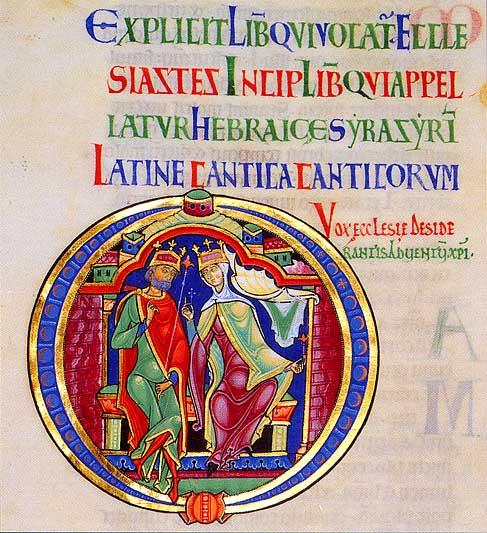 EXPLICIT LIB̄ QVI VOCAT̄ ECCLE
SIASTES INCIP LIB̄ QVI APPEL
LATVR HEBRAICE SYRASYRĪ
LATINE CANTICA CANTICORVM
VOX ECCLESIE DESIDE
RANTIS ADVENTV̄ XPI.